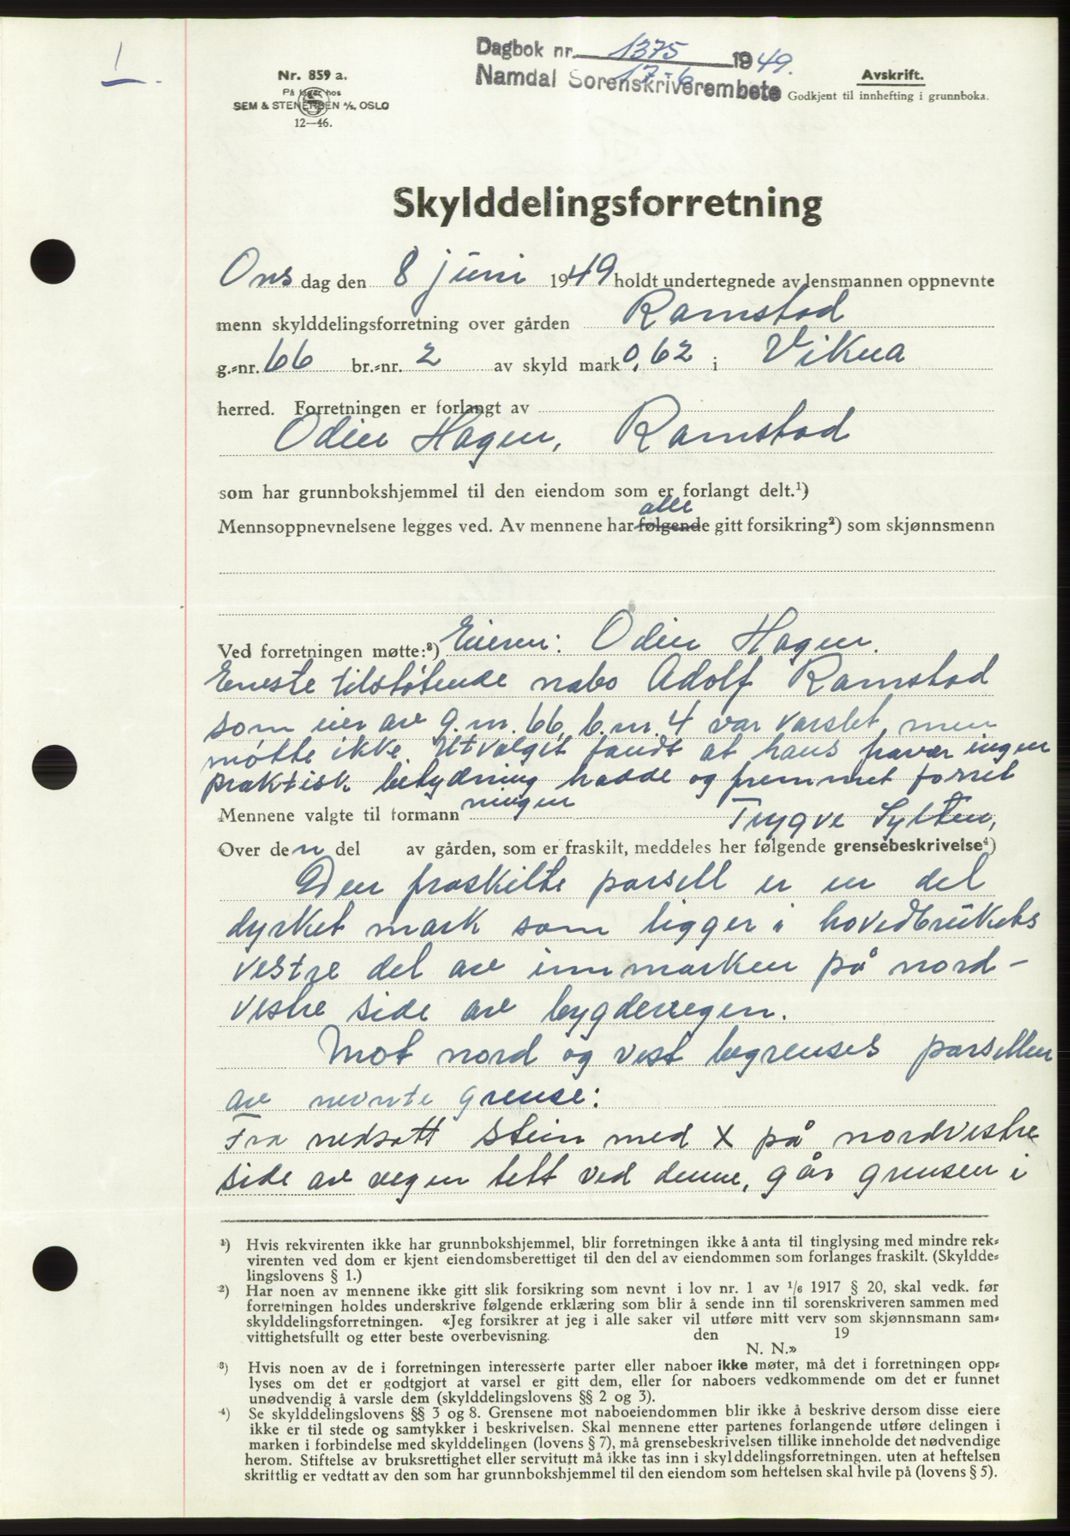 1
Dagbok nr. 1375 1949.
Namdal Sorenskriverembete
17-6
Nr. 859 a.
På lager hos
SEM & STENERSEN A/S, OSLO
12—46.
Avskrift.
Godkjent til innhefting i grunnboka.
Skylddelingsforretning
Onsdag den 8 juni 1949 holdt undertegnede av lensmannen oppnevnte
menn skylddelingsforretning over gården Ramstad
g.-nr. 66 br.-nr. 2 av skyld mark 0,62 i Vikna
herred. Forretningen er forlangt av
Odin Hagen, Ramstad
som har grunnbokshjemmel til den eiendom som er forlangt delt.¹)
alle
Mennsoppnevnelsene legges ved. Av mennene har følgende gitt forsikring²) som skjønnsmenn
Ved forretningen møtte:³) Eieren: Odin Hagen.
Eneste tilstøtende nabo Adolf Ramstad
som eier av g.nr. 66, b.nr. 4 var varslet, men
møtte ikke. Utvalgit fandt at hans fravær ingen
praktisk betydning hadde og fremmet forret
ningen
Mennene valgte til formann Trygve Sylten,
Over den del av gården, som er fraskilt, meddeles her følgende grensebeskrivelse⁴)
Den fraskilte parsell er en del
dyrket mark som ligger i hovedbrukets
vestre del av innmarken på nord-
vestre side av bygdevegen.
Mot nord og vest begrenses parsellen
av nevnte grense:
Fra nedsatt stein med X på nordvestre
side av vegen tett ved denne, går grensen i
¹) Hvis rekvirenten ikke har grunnbokshjemmel, blir forretningen ikke å anta til tinglysing med mindre rek-
virenten ved dom er kjent eiendomsberettiget til den del av eiendommen som forlanges fraskilt. (Skyldde-
lingslovens § 1.)
²) Har noen av mennene ikke gitt slik forsikring som nevnt i lov nr. 1 av 1/6 1917 § 20, skal vedk. før
forretningen holdes underskrive følgende erklæring som blir å sende inn til sorenskriveren sammen med
skylddelingsforretningen. «Jeg forsikrer at jeg i alle saker vil utføre mitt verv som skjønnsmann sam-
vittighetsfullt og etter beste overbevisning. den 19
N. N.»
³) Hvis noen av de i forretningen interesserte parter eller naboer ikke møter, må det i forretningen opp-
lyses om det er godtgjort at varsel er gitt dem, eller for naboers vedkommende om det er funnet
unødvendig å varsle dem (skylddelingslovens §§ 2 og 3).
⁴) Se skylddelingslovens §§ 3 og 8. Grensene mot naboeiendommen blir ikke å beskrive dersom disse eiere
ikke er til stede og samtykker i beskrivelsen. Skal mennene etter partenes forlangende utføre delingen i
marken i forbindelse med skylddelingen (lovens § 7), må grensebeskrivelsen tillike inneholde det nødvendige
herom. Stiftelse av bruksrettighet eller servitutt må ikke tas inn i skylddelingsforretningen. uten at heftelsen
skriftlig er vedtatt av den som har grunnbokshjemmel til den eiendom som heftelsen skal hvile på (lovens § 5).